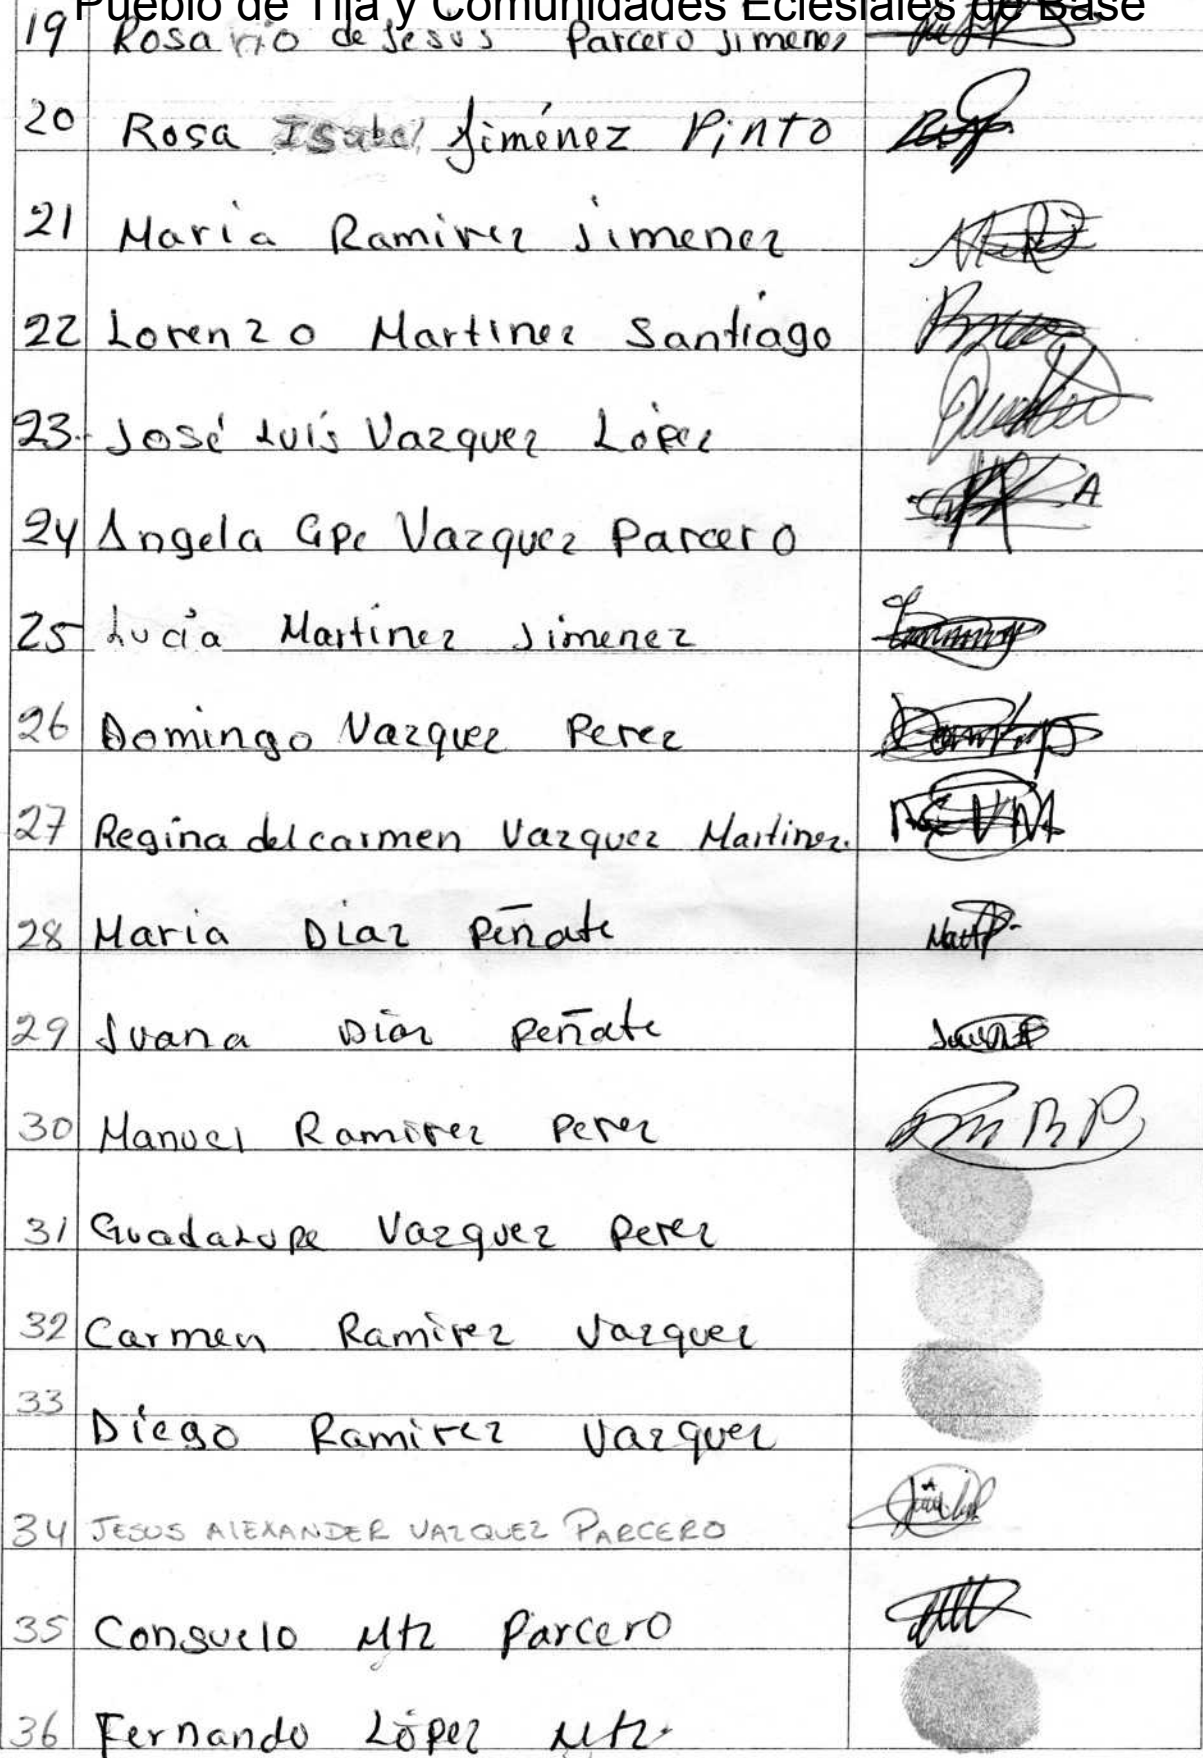 Pueblo de Tila y Comunidades Eclesiales de Base
19 Rosario de Jesus Parcero Jimenez
20 Rosa Isabel Jiménez Pinto
21 Maria Ramirez Jimenez
22 Lorenzo Martinez Santiago
23. José Luís Vazquez López
24 Angela Gpe Vazquez Parcero
25 Lucía Martinez Jimenez
26 Domingo Vazquez Perez
27 Regina del carmen Vazquez Martinez.
28 Maria Diaz Peñate
29 Juana Diaz Peñate
30 Manuel Ramirez Perez
31 Guadalupe Vazquez Perez
32 Carmen Ramirez Vazquez
33 Diego Ramirez Vazquez
34 JESUS ALEXANDER VAZQUEZ PARCERO
35 Consuelo Mtz Parcero
36 Fernando López Mtz.